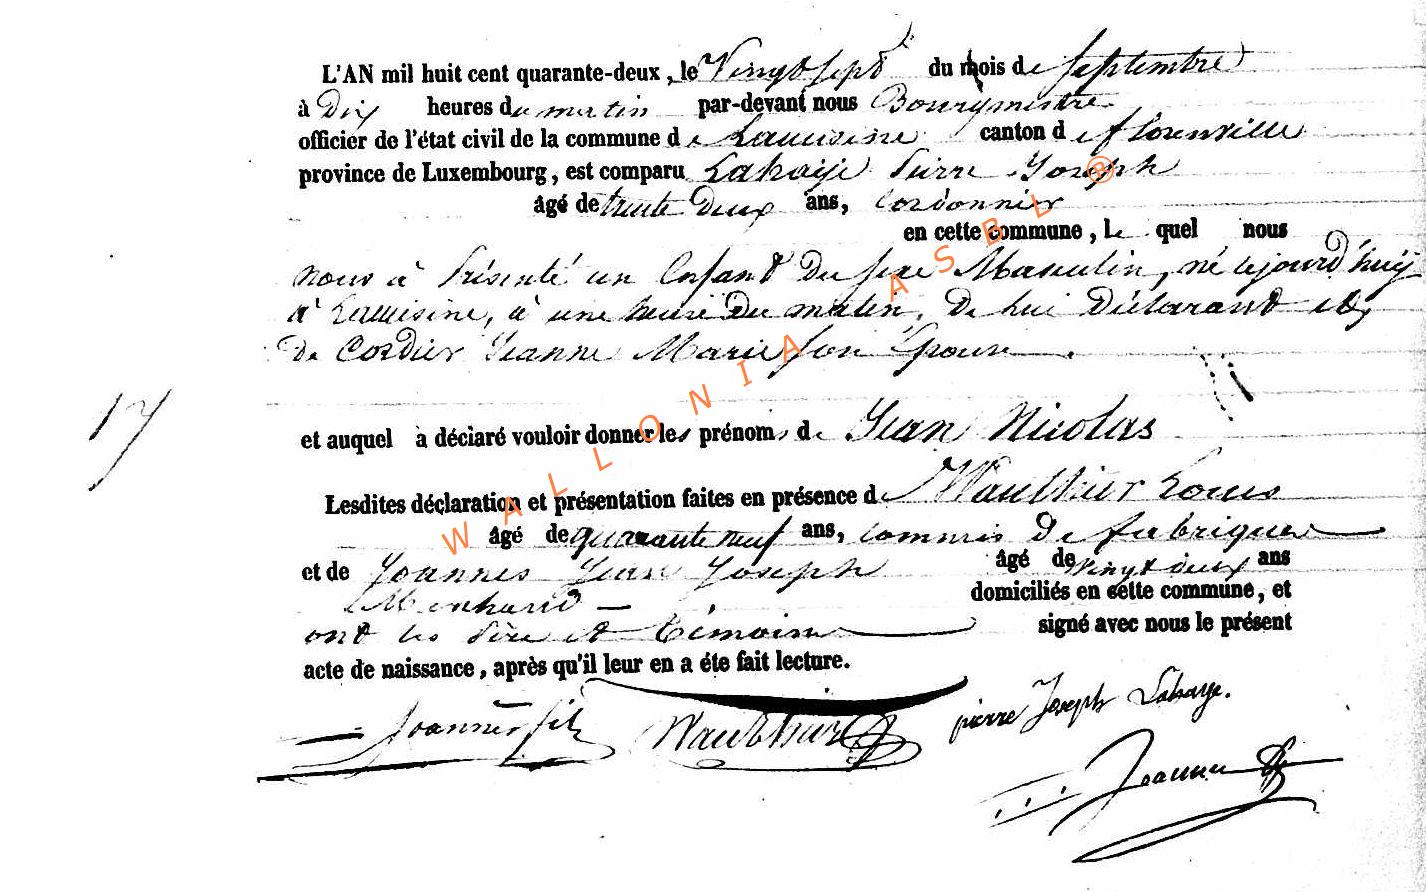 L'AN mil huit cent quarante-deux, le Vingt sept du mois de Septembre
à Dix heures du matin par-devant nous Bourgmestre
officier de l'état civil de la commune de Lacuisine canton de florenville
province de Luxembourg, est comparu Lahaije Pierre Joseph
âgé de trente deux ans, Cordonnier
en cette commune, le quel nous
nous à Présenté un Enfant du sexe Masculin, né cejourd'huij
à Lacuisine, à une heure du matin, De lui Déclarant et
De Cordier Jeanne Marie son Épouse
17
et auquel à déclaré vouloir donner les prénoms de Jean Nicolas
Lesdites déclaration et présentation faites en présence de Waulthier Louis
âgé de quarante neuf ans, Commis de fabriques
et de Joannes Jean Joseph âgé de vingt deux ans
domiciliés en cette commune, et
ont les Père et témoins signé avec nous le présent
acte de naissance, après qu'il leur en a éte fait lecture.
Joannes fils Waulthier pierre Joseph Lahaye.
Joannes
WALLONIA ASBL ®